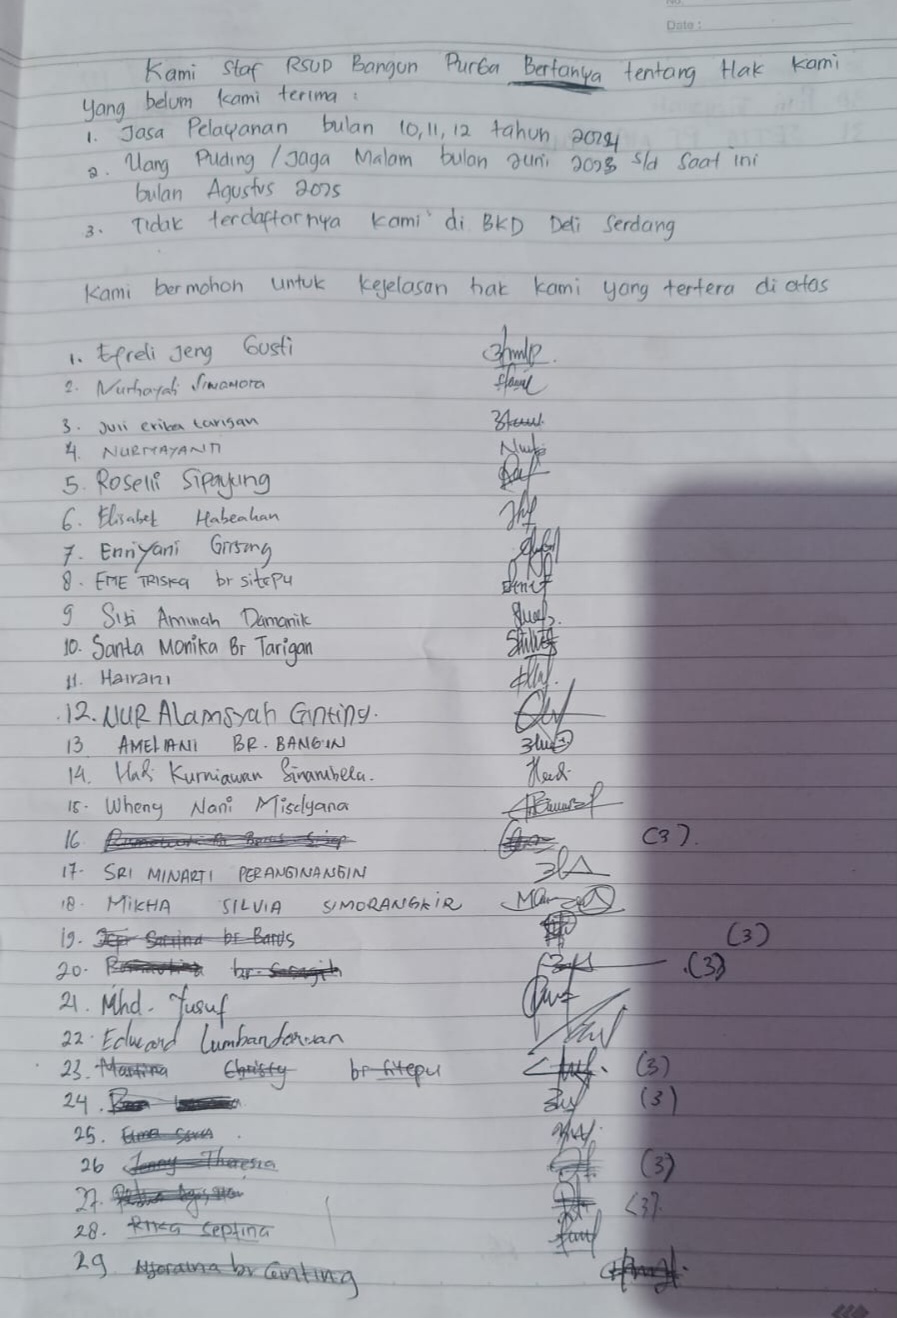 No.
Date :
Kami Staf RSUD Bangun Purba Bertanya tentang Hak kami
yang belum kami terima :
1. Jasa Pelayanan bulan 10, 11, 12 tahun 2024
2. Uang Puding / Jaga Malam bulan Juni 2023 s/d Saat ini
bulan Agustus 2025
3. Tidak terdaftarnya kami di BKD Deli Serdang
Kami bermohon untuk kejelasan hak kami yang tertera di atas
1. Efreli Jeng Gusti
2. Nurhayati Simamora
3. Juni erika tarigan
4. NURMAYANTI
5. Roselli Sipayung
6. Elisabet Habeahan
7. Enriyani Girsang
8. EME TRISKA br sitepu
9 Siti Aminah Damanik
10. Santa Monika Br Tarigan
11. Hairani
12. NUR Alamsyah Ginting.
13 AMELIANI BR. BANGUN
14. Hadi Kurniawan Sinambela.
15. Wheny Nani Misdyana
16 (3).
17. SRI MINARTI PERANGINANGIN
18. MIKHA SILVIA SIMORANGKIR
19. br Barus (3)
20. br. (3)
21. Mhd. Yusuf
22. Edward Lumbantoruan
23. Martina Christy br sitepu (3)
24. (3)
25.
26 Jenny Theresia (3)
27. (3)
28. Rika Septina
29 br Ginting